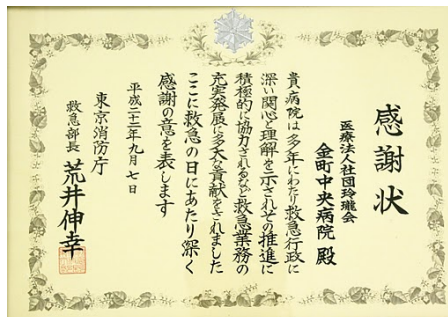 感謝状
医療法人社団玲瓏会
金町中央病院 殿
貴病院は多年にわたり救急行政に
深い関心と理解を示されその推進に
積極的に協力されるなど救急業務の
充実発展に多大な貢献をされました
ここに救急の日にあたり深く
感謝の意を表します
平成二十二年九月七日
東京消防庁
救急部長 荒井伸幸